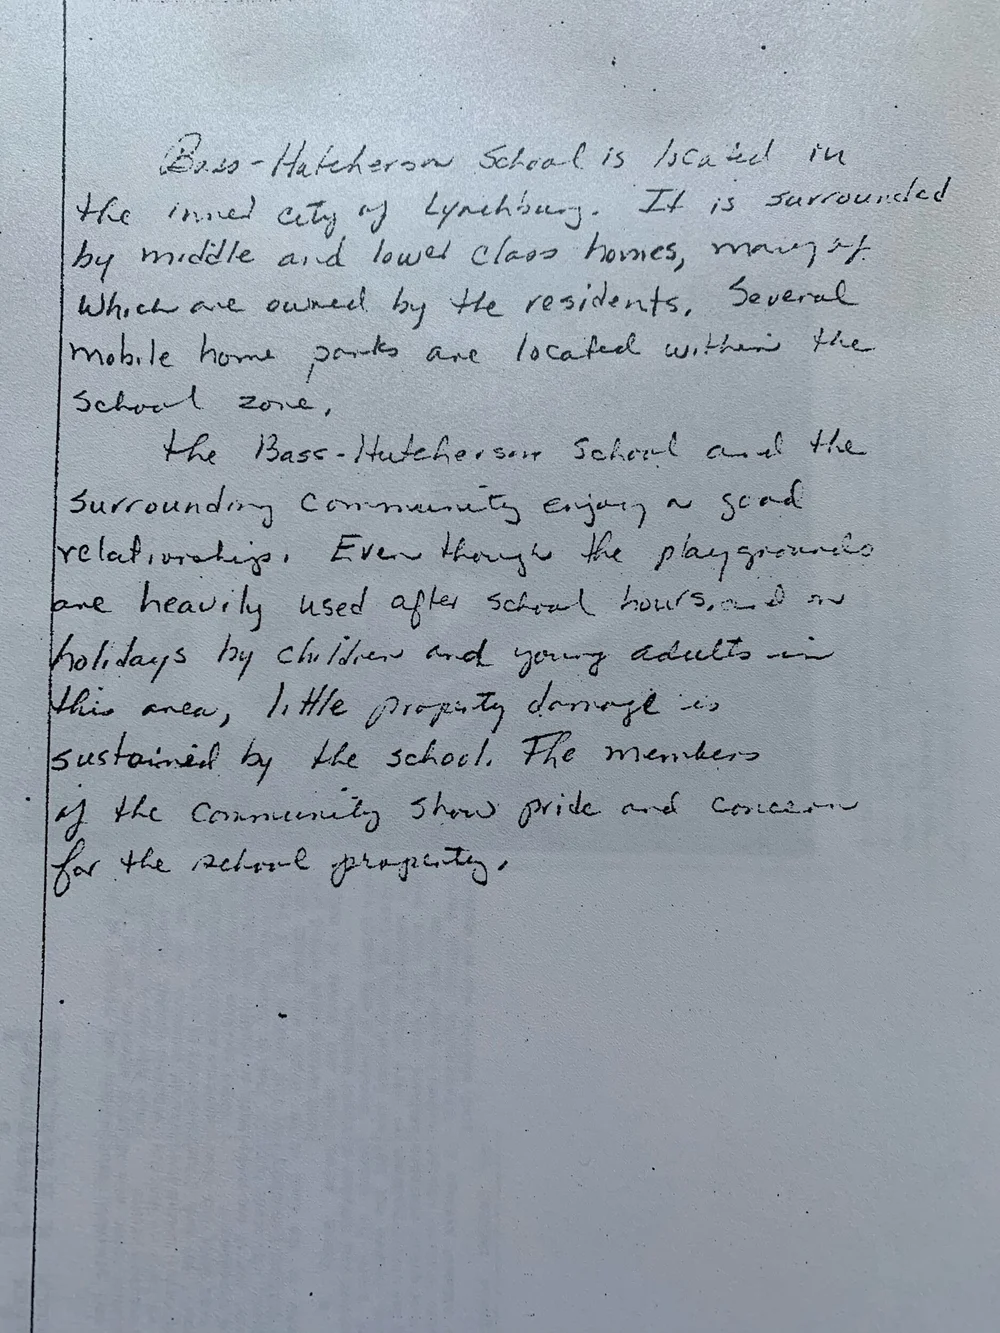 Bass-Hutcherson School is located in
the inner city of Lynchburg. It is surrounded
by middle and lower class homes, many of
which are owned by the residents. Several
mobile home parks are located within the
school zone.
the Bass-Hutcherson School and the
surrounding community enjoy a good
relationship. Even though the playgrounds
are heavily used after school hours, and on
holidays by children and young adults in
this area, little property damage is
sustained by the school. The members
of the community show pride and concern
for the school property.